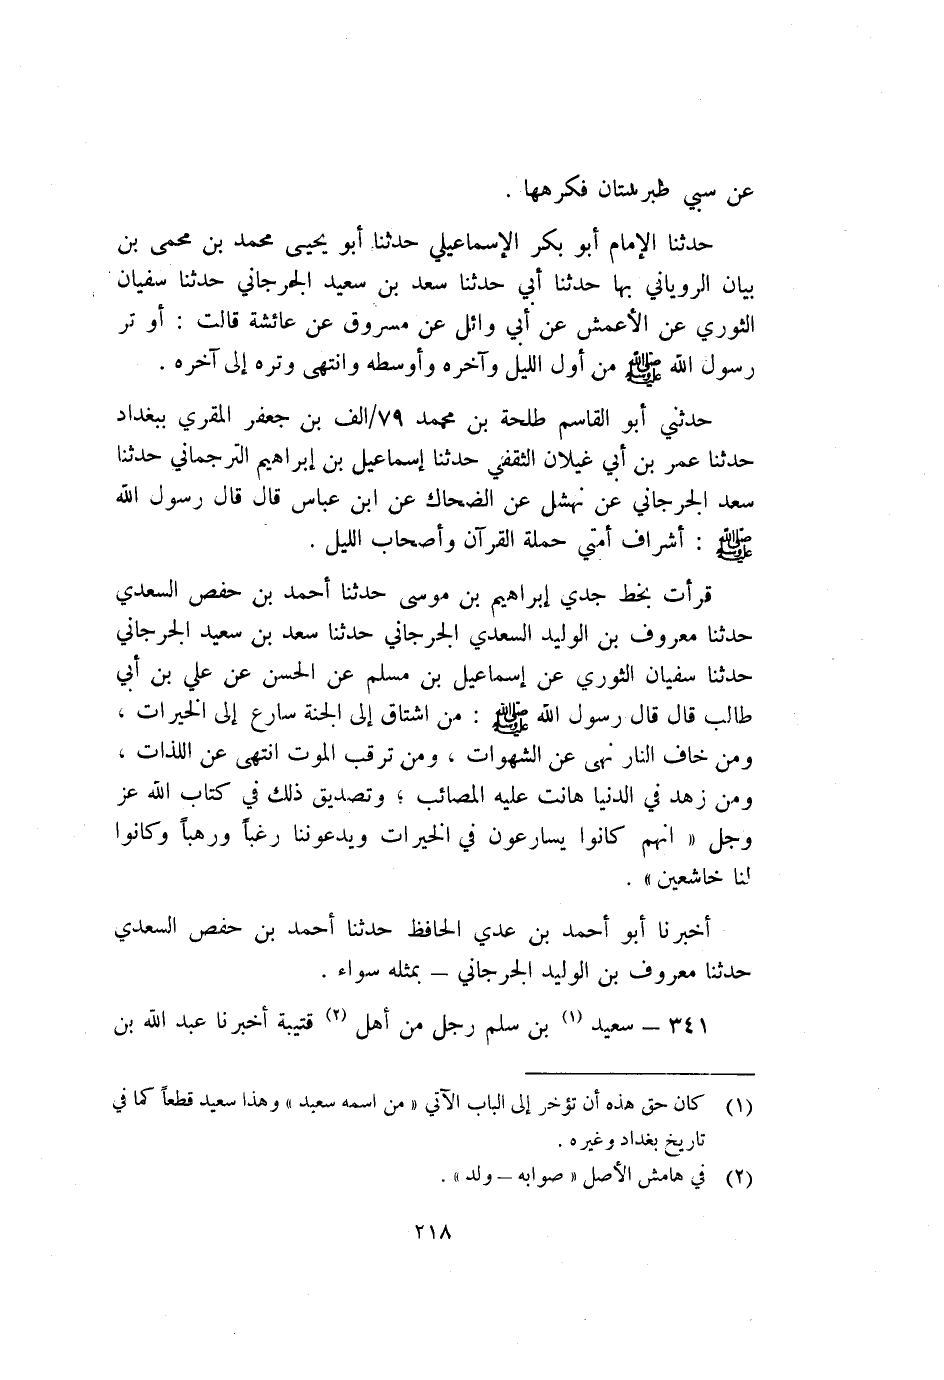 عن سبي طبرستان فكرهها .
حدثنا الإمام أبو بكر الإسماعيلي حدثنا أبو يحيى محمد بن محمى بن
بيان الروياني بها حدثنا أبي حدثنا سعد بن سعيد الجرجاني حدثنا سفيان
الثوري عن الأعمش عن أبي وائل عن مسروق عن عائشة قالت : أو تر
رسول الله ﷺ من أول الليل وآخره وأوسطه وانتهى وتره إلى آخره .
حدثني أبو القاسم طلحة بن محمد ٧٩/الف بن جعفر المقري ببغداد
حدثنا عمر بن أبي غيلان الثقفي حدثنا إسماعيل بن إبراهيم الترجماني حدثنا
سعد الجرجاني عن نهشل عن الضحاك عن ابن عباس قال قال رسول الله
ﷺ : أشراف أمتي حملة القرآن وأصحاب الليل .
قرأت بخط جدي إبراهيم بن موسى حدثنا أحمد بن حفص السعدي
حدثنا معروف بن الوليد السعدي الجرجاني حدثنا سعد بن سعيد الجرجاني
حدثنا سفيان الثوري عن إسماعيل بن مسلم عن الحسن عن علي بن أبي
طالب قال قال رسول الله ﷺ : من اشتاق إلى الجنة سارع إلى الخيرات ،
ومن خاف النار نهى عن الشهوات ، ومن ترقب الموت انتهى عن اللذات ،
ومن زهد في الدنيا هانت عليه المصائب ؛ وتصديق ذلك في كتاب الله عز
وجل « انهم كانوا يسارعون في الخيرات ويدعوننا رغباً ورهباً وكانوا
لنا خاشعين » .
أخبرنا أبو أحمد بن عدي الحافظ حدثنا أحمد بن حفص السعدي
حدثنا معروف بن الوليد الجرجاني – بمثله سواء .
٣٤١ – سعيد (١) بن سلم رجل من أهل (٢) قتيبة أخبرنا عبد الله بن
(١) كان حق هذه أن تؤخر إلى الباب الآتي « من اسمه سعيد » وهذا سعيد قطعاً كما في
تاريخ بغداد وغيره .
(٢) في هامش الأصل « صوابه – ولد » .
٢١٨